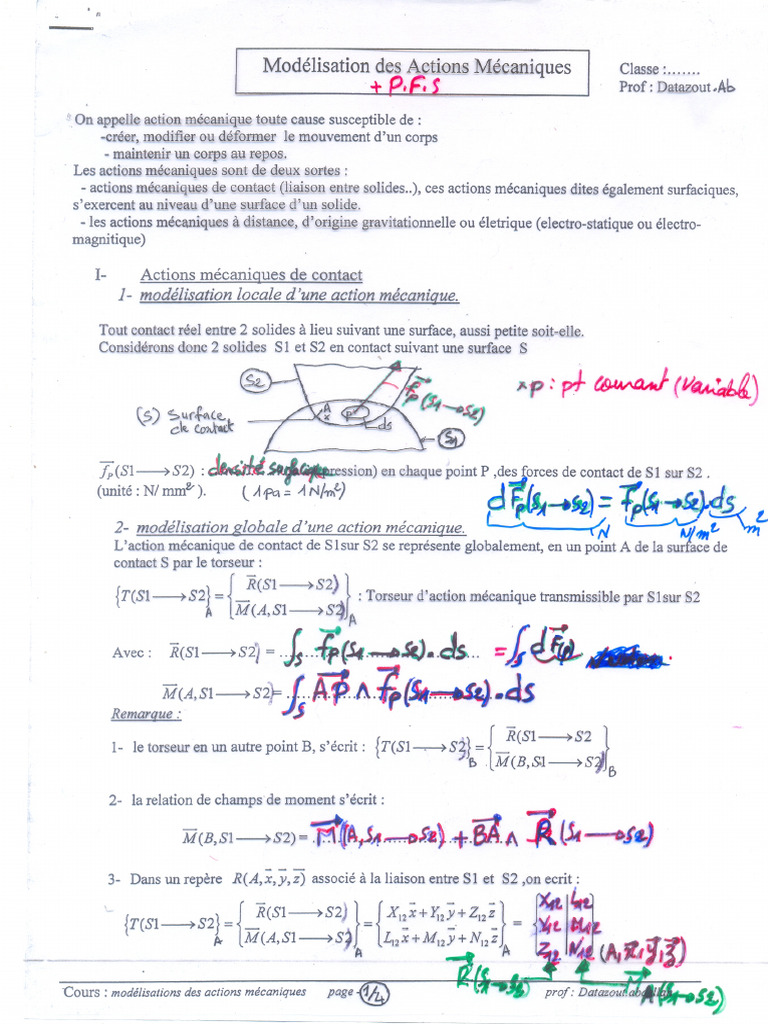 Modélisation des Actions Mécaniques
+ P.F.S
Classe :.......
Prof : Datazout .Ab
On appelle action mécanique toute cause susceptible de :
-créer, modifier ou déformer le mouvement d'un corps
- maintenir un corps au repos.
Les actions mécaniques sont de deux sortes :
- actions mécaniques de contact (liaison entre solides..), ces actions mécaniques dites également surfaciques,
s'exercent au niveau d'une surface d'un solide.
- les actions mécaniques à distance, d'origine gravitationnelle ou életrique (electro-statique ou électro-
magnitique)
I- Actions mécaniques de contact
1- modélisation locale d'une action mécanique.
Tout contact réel entre 2 solides à lieu suivant une surface, aussi petite soit-elle.
Considérons donc 2 solides S1 et S2 en contact suivant une surface S
S2
A
x
P
ds
f⃗p(S1→S2)
xp : pt courant (variable)
(S) surface
de contact
S1
f⃗P(S1⟶S2) : densité surfacique (pression) en chaque point P ,des forces de contact de S1 sur S2 .
(unité : N/ mm² ). (1Pa = 1N/m²)
dF⃗p(S1→S2) = f⃗p(S1→S2).ds
N N/m² m²
2- modélisation globale d'une action mécanique.
L'action mécanique de contact de S1sur S2 se représente globalement, en un point A de la surface de
contact S par le torseur :
{T(S1⟶S2}A = {R⃗(S1⟶S2) M⃗(A,S1⟶S2)}A : Torseur d'action mécanique transmissible par S1sur S2
Avec : R⃗(S1⟶S2) = ∫S f⃗p(S1→S2).ds = ∫S dF⃗(p)
M⃗(A,S1⟶S2) = ∫S AP⃗ ∧ f⃗p(S1→S2).ds
Remarque :
1- le torseur en un autre point B, s'écrit : {T(S1⟶S2)}B = {R⃗(S1⟶S2 M⃗(B,S1⟶S2)}B
2- la relation de champs de moment s'écrit :
M⃗(B,S1⟶S2) = M⃗(A,S1→S2) + BA⃗ ∧ R⃗(S1→S2)
3- Dans un repère R(A,x⃗,y⃗,z⃗) associé à la liaison entre S1 et S2 ,on ecrit :
{T(S1⟶S2)}A = {R⃗(S1⟶S2) M⃗(A,S1⟶S2)}A = {X12x⃗+Y12y⃗+Z12z⃗ L12x⃗+M12y⃗+N12z⃗}A = {X12 L12 Y12 M12 Z12 N12}(A,x⃗,y⃗,z⃗)
R⃗(S1→S2) M⃗A(S1→S2)
Cours : modélisations des actions mécaniques page -1/4 prof : Datazout abdellah